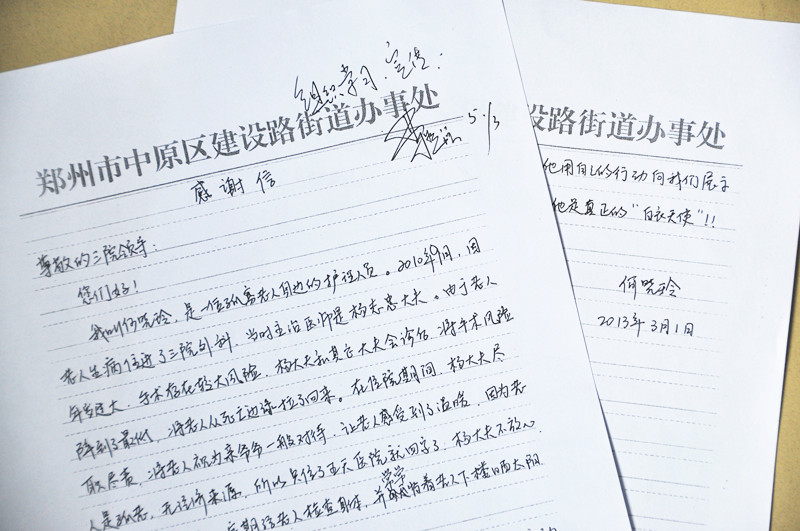 组织学习、宣传:
5.13
郑州市中原区建设路街道办事处
感谢信
尊敬的三院领导:
您们好!
我叫何晓玲,是一位孤寡老人身边的护理人员。2010年9月,因
老人生病住进了三院外科,当时主治医师是杨志惠大夫。由于老人
年岁过大,手术存在较大风险,杨大夫和其它大夫会诊后,将手术风险
降到了最低,将老人从死亡边缘拉了回来。在住院期间,杨大夫尽
职尽责,将老人视为亲爷爷一般对待,让老人感受到了温暖,因为老
人是孤老,无经济来源,所以只住了五天医院就回家了,杨大夫不放心
定期给老人检查身体,并常常搀扶着老人下楼晒太阳
设路街道办事处
他用自己的行动向我们展示
他是真正的“白衣天使”!!
何晓玲
2013年3月1日